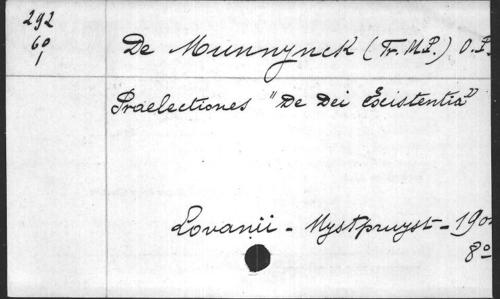 292
60
1
De Munnynck (Fr. M.P.) O.P.
Praelectiones "De Dei Existentia"
Lovanii - Uystpruyst - 190
8º